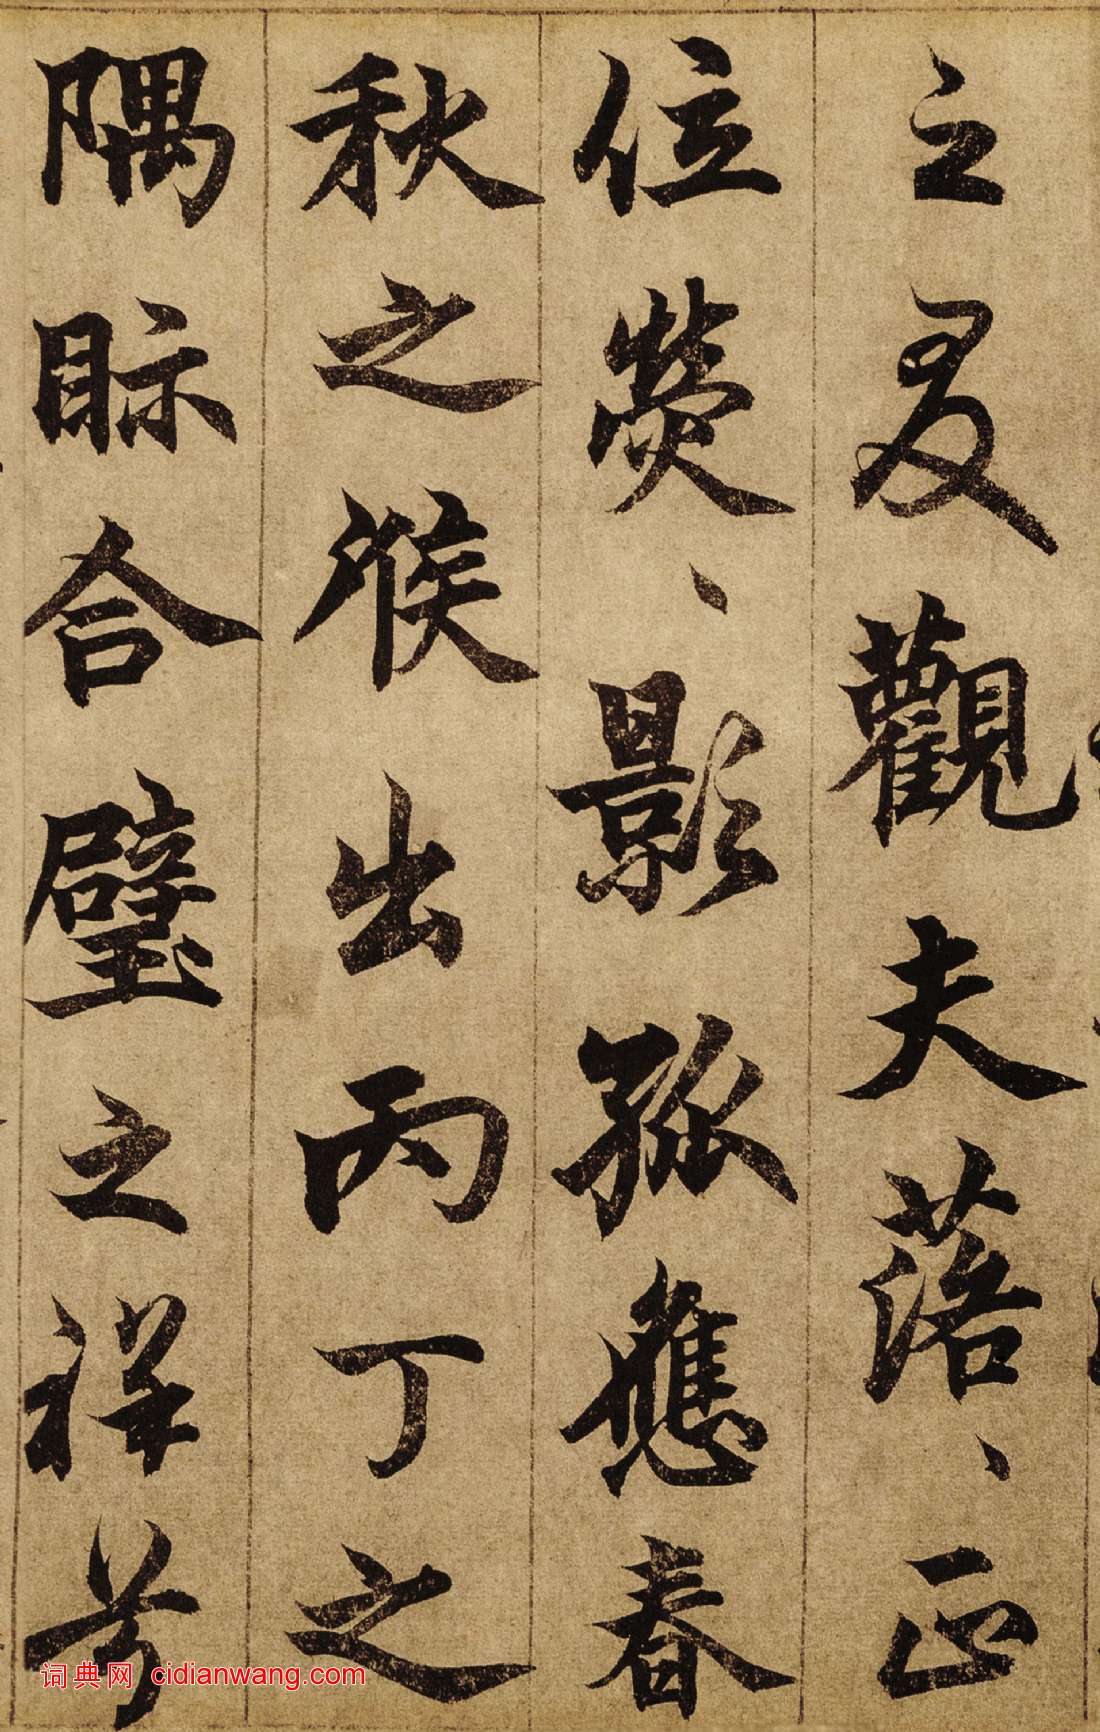 之叟觀夫落、正
位熒、影孤應春
秋之候出丙丁之
隅眎合璧之祥
词典网 cidianwang.com